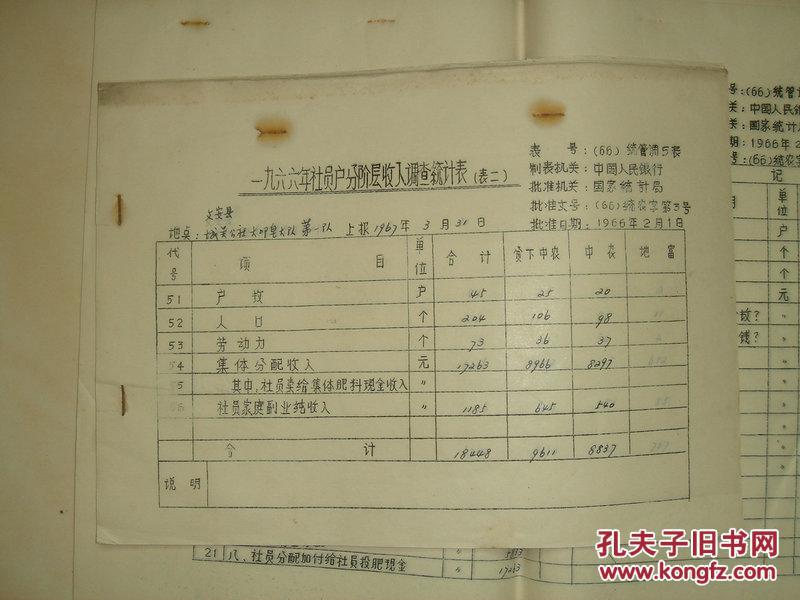 一九六六年社员户分阶层收入调查统计表(表二)
表 号:(66)统管调5表
制表机关:中国人民银行
批准机关:国家统计局
批准文号:(66)统农字第3号
批准日期:1966年2月1日
文安县
地点:城关公社大 大队第一队 上报1967年3月31日
代号 项目 单位 合计 贫下中农 中农 地富
51 户数 户 45 25 20
52 人口 个 204 106 98 11
53 劳动力 个 73 36 37
54 集体分配收入 元 17263 8966 8297
55 其中,社员卖给集体肥料现金收入 〃
56 社员家庭副业纯收入 〃 1185 645 540
合计 18448 9611 8837
说明
号:(66)统管
关:中国人民银
关:国家统计
期:1966年2
号:(66)统农字
记
单位
户
个
个
元
个
数?
钱?
21 八、社员分配加付给社员投肥现金 〃 17263
孔夫子旧书网
www.kongfz.com